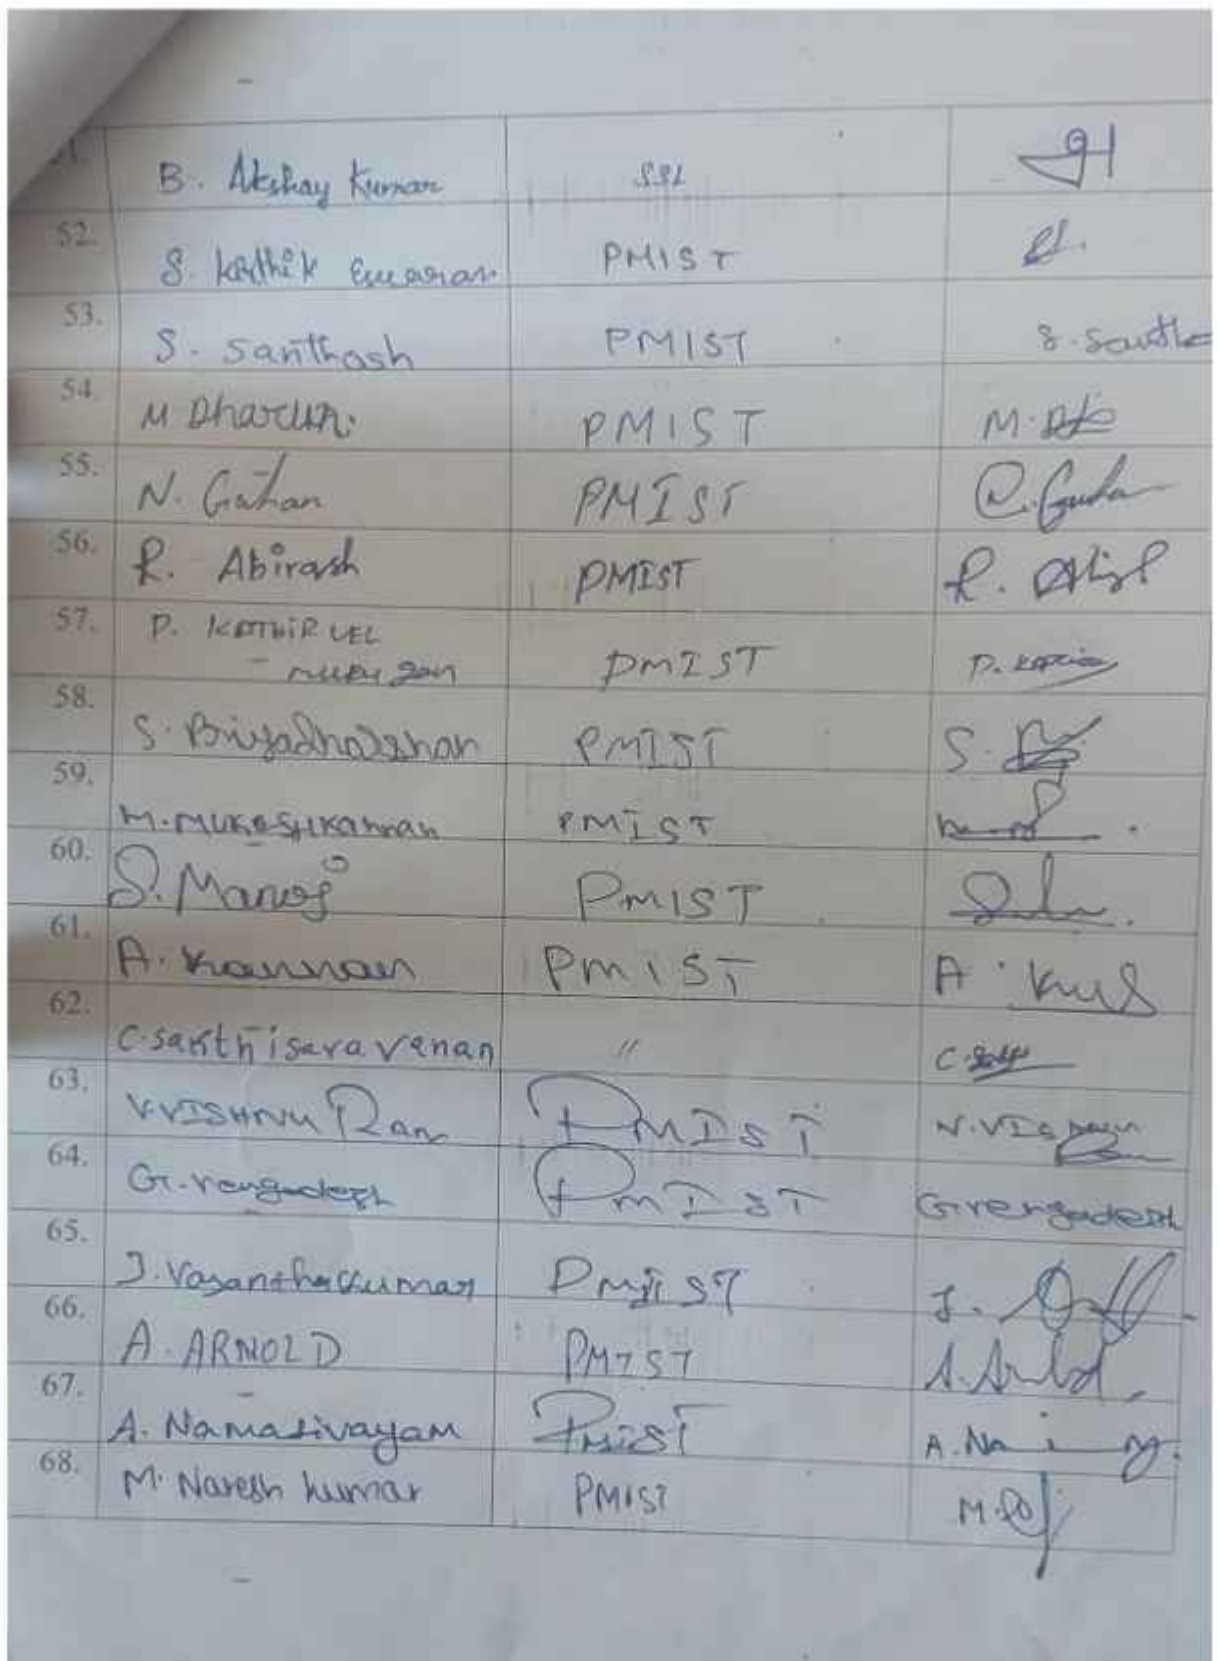 1. B. Akshay Kumar SSL
52. S. Karthik Eswaran PMIST
53. S. Santhosh PMIST S. Santh
54. M Dharun. PMIST M.
55. N. Guhan PMIST Guha
56. R. Abirash PMIST R.
57. P. KATHIRVEL PMIST P.
- murugan
58. S. Briyadharshan PMIST S.
59. M. MUKESHKannan PMIST
60. S. Manoj PMIST
61. A. Kannan PMIST A.
62. C. sakthisaravanan " C.
63. V.VISHNU Ram PMIST
64. G. Vengadesh PMIST G vengadesh
65. J. Vasanthakumar PMIST J.
66. A. ARNOLD PMIST A. Arnold
67. A. Namasivayam PMIST A. Na
68. M. Naresh kumar PMIST M.